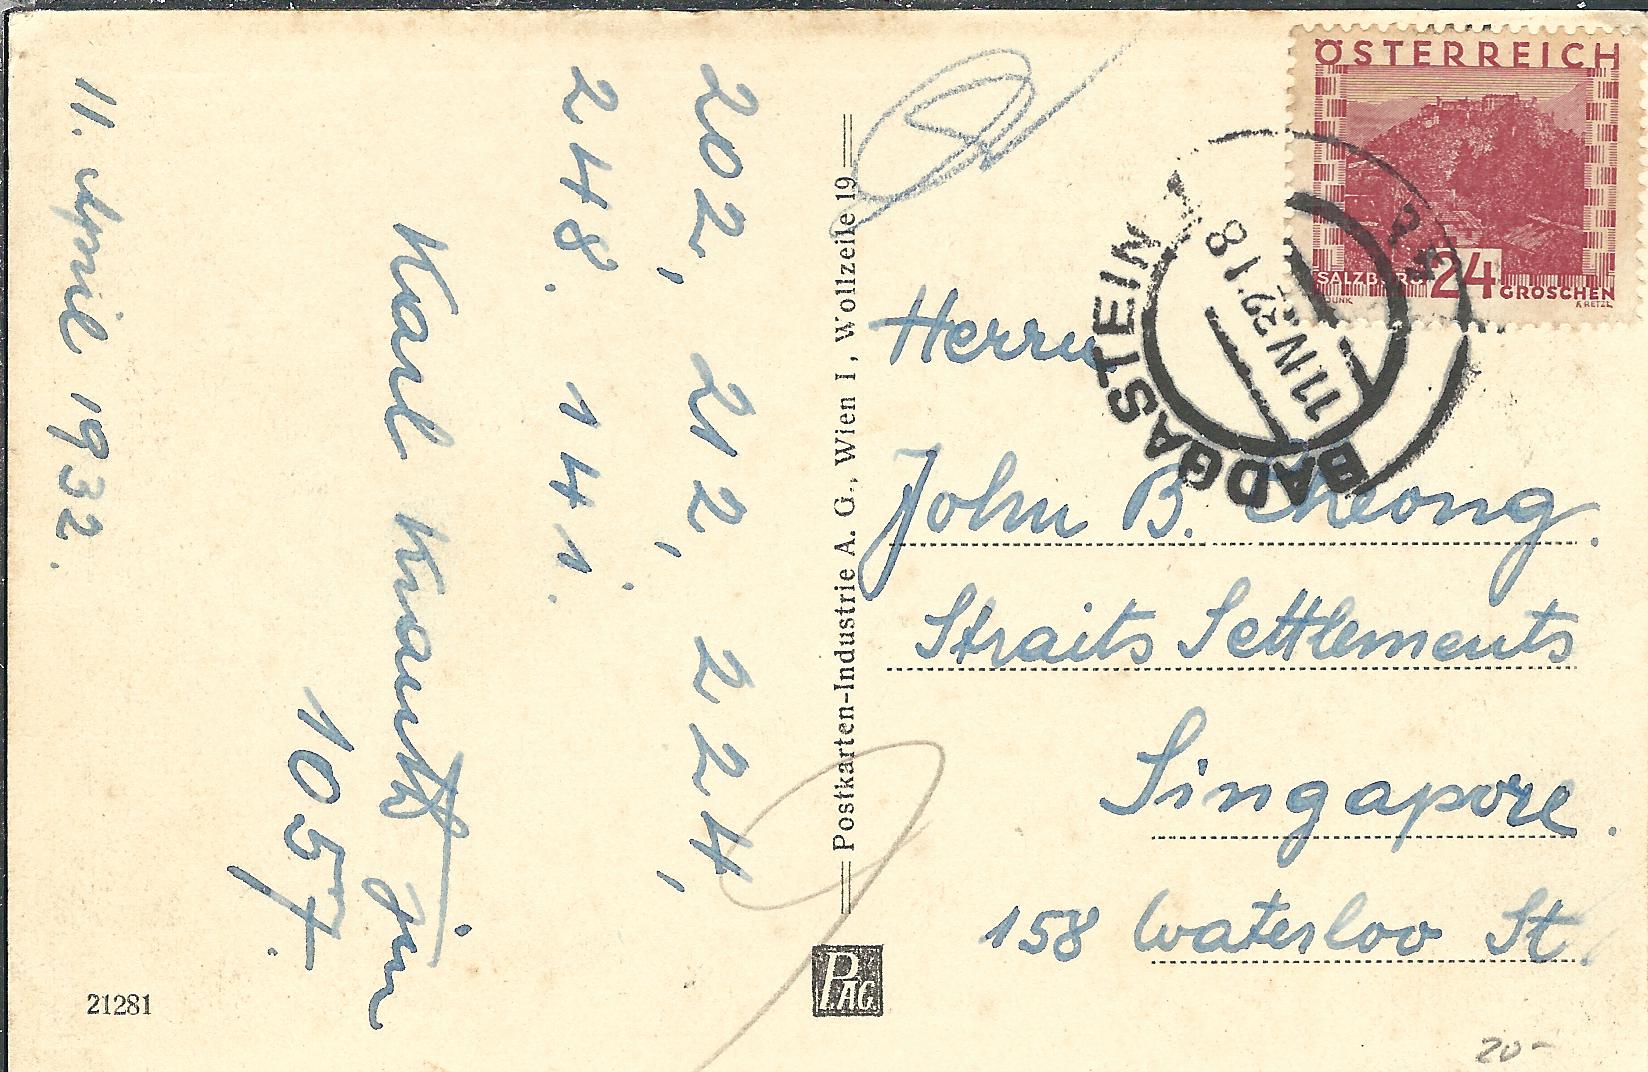 202, 212, 224,
248. 141.
Karl
1057.
11. April 1932.
21281
Postkarten-Industrie A. G., Wien I, Wollzeile 19
PAG
ÖSTERREICH
SALZBURG
24
GROSCHEN
BADGASTEIN 1
11 IV 32 18
Herrn
John B. Cheong.
Straits Settlements
Singapore.
158 Waterloo St.
20-